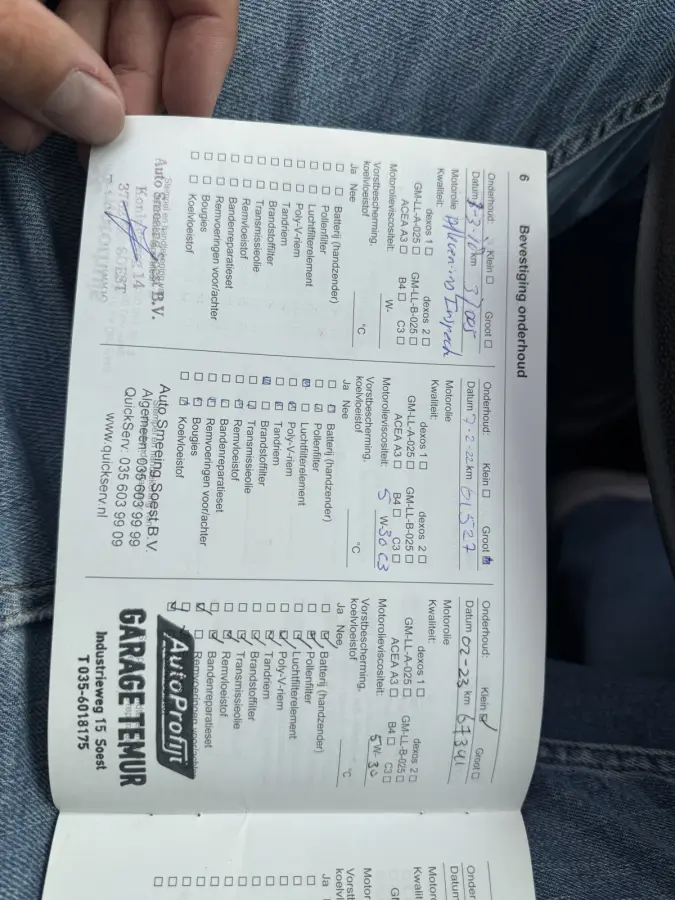 6
Bevestiging onderhoud
Onderhoud: Klein Groot
Datum km 37005
Motorolie
Kwaliteit:
dexos 1 dexos 2
GM-LL-A-025 GM-LL-B-025
ACEA A3 B4 C3
Motorolieviscositeit: W-
Vorstbescherming,
koelvloeistof °C
Ja Nee
Batterij (handzender)
Pollenfilter
Luchtfilterelement
Poly-V-riem
Tandriem
Brandstoffilter
Transmissieolie
Remvloeistof
Bandenreparatieset
Remvoeringen voor/achter
Bougies
Koelvloeistof
Auto Smeeing Soest B.V.
Onderhoud: Klein Groot
Datum 7-2-22 km 61527
Motorolie
Kwaliteit:
dexos 1 dexos 2
GM-LL-A-025 GM-LL-B-025
ACEA A3 B4 C3
Motorolieviscositeit: 5 W-30 C3
Vorstbescherming,
koelvloeistof °C
Ja Nee
Batterij (handzender)
Pollenfilter
Luchtfilterelement
Poly-V-riem
Tandriem
Brandstoffilter
Transmissieolie
Remvloeistof
Bandenreparatieset
Remvoeringen voor/achter
Bougies
Koelvloeistof
Auto Smeeing Soest B.V.
Algemeen: 035 603 99 99
QuickServ: 035 603 99 09
www.quickserv.nl
Onderhoud: Klein Groot
Datum 02-23 km 67341
Motorolie
Kwaliteit:
dexos 1 dexos 2
GM-LL-A-025 GM-LL-B-025
ACEA A3 B4 C3
Motorolieviscositeit: 5W-30
Vorstbescherming,
koelvloeistof °C
Ja Nee
Batterij (handzender)
Pollenfilter
Luchtfilterelement
Poly-V-riem
Tandriem
Brandstoffilter
Transmissieolie
Remvloeistof
Bandenreparatieset
Remvoeringen voor/achter
AutoProfijt
GARAGE TEMUR
Industrieweg 15 Soest
T 035-6018175